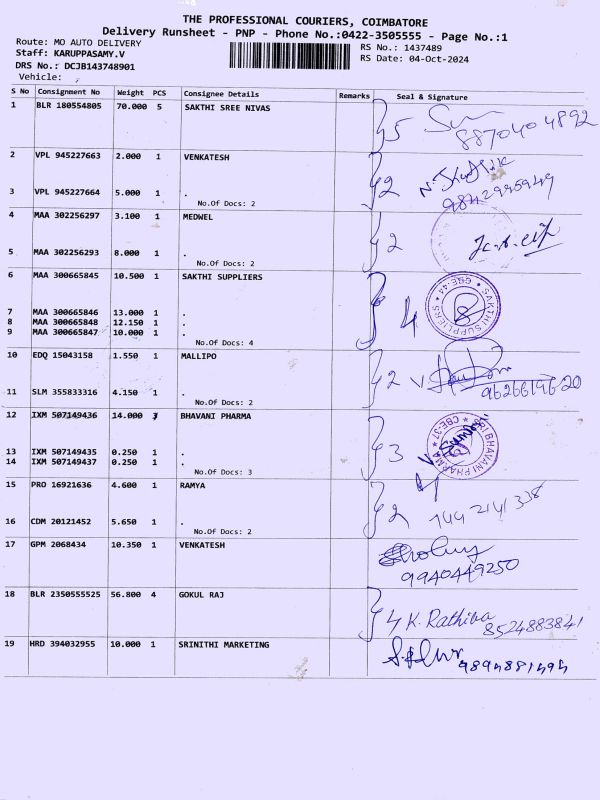 THE PROFESSIONAL COURIERS, COIMBATORE
Delivery Runsheet - PNP - Phone No.:0422-3505555 - Page No.:1
Route: MO AUTO DELIVERY RS No.: 1437489
Staff: KARUPPASAMY.V RS Date: 04-Oct-2024
DRS No.: DCJB143748901
Vehicle:
S No Consignment No Weight PCS Consignee Details Remarks Seal & Signature
1 BLR 180554805 70.000 5 SAKTHI SREE NIVAS 5
8870404892
2 VPL 945227663 2.000 1 VENKATESH 2
3 VPL 945227664 5.000 1 .
No.Of Docs: 2
4 MAA 302256297 3.100 1 MEDWEL 2
5 MAA 302256293 8.000 1 .
No.Of Docs: 2
6 MAA 300665845 10.500 1 SAKTHI SUPPLIERS 4
SAKTHI SUPPLIERS CBE-44
7 MAA 300665846 13.000 1 .
8 MAA 300665848 12.150 1 .
9 MAA 300665847 10.000 1 .
No.Of Docs: 4
10 EDQ 15043158 1.550 1 MALLIPO 2
9626619620
11 SLM 355833316 4.150 1 .
No.Of Docs: 2
12 IXM 507149436 14.000 BHAVANI PHARMA 3
BHAVANI PHARMA CBE-37
13 IXM 507149435 0.250 1 .
14 IXM 507149437 0.250 1 .
No.Of Docs: 3
15 PRO 16921636 4.600 1 RAMYA 2
16 CDM 20121452 5.650 1 .
No.Of Docs: 2
17 GPM 2068434 10.350 1 VENKATESH
9940449250
18 BLR 2350555525 56.800 4 GOKUL RAJ
4 K. Rathiba
8524883841
19 HRD 394032955 10.000 1 SRINITHI MARKETING